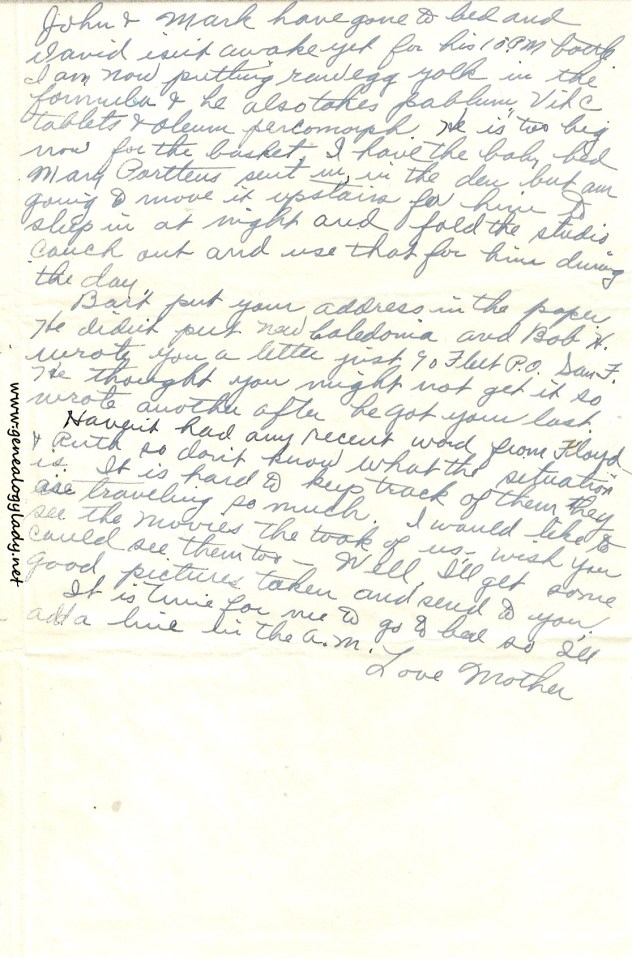 John & Mark have gone to bed and
David isn't awake yet for his 10 PM bottle.
I am now putting raw egg yolk in the
formula & he also takes pablum, Vit C
tablets & oleum percomorph. He is too big
now for the basket. I have the baby bed
Mary sent in, in the den but am
going to move it upstairs for him to
sleep in at night and fold the studio
couch out and use that for him during
the day.
Bart put your address in the paper
He didn't put New Caledonia and Bob H.
wrote you a letter just % Fleet P.O. San F.
He thought you might not get it so
wrote another after he got your last.
Haven't had any recent word from Floyd
& Ruth so don't know what the situation
is. It is hard to keep track of them they
are traveling so much. I would like to
see the movies the took of us - wish you
could see them too - Well, I'll get some
good pictures taken and send to you.
It is time for me to go to bed so I'll
add a line in the a.m.
Love Mother
www.genealogylady.net